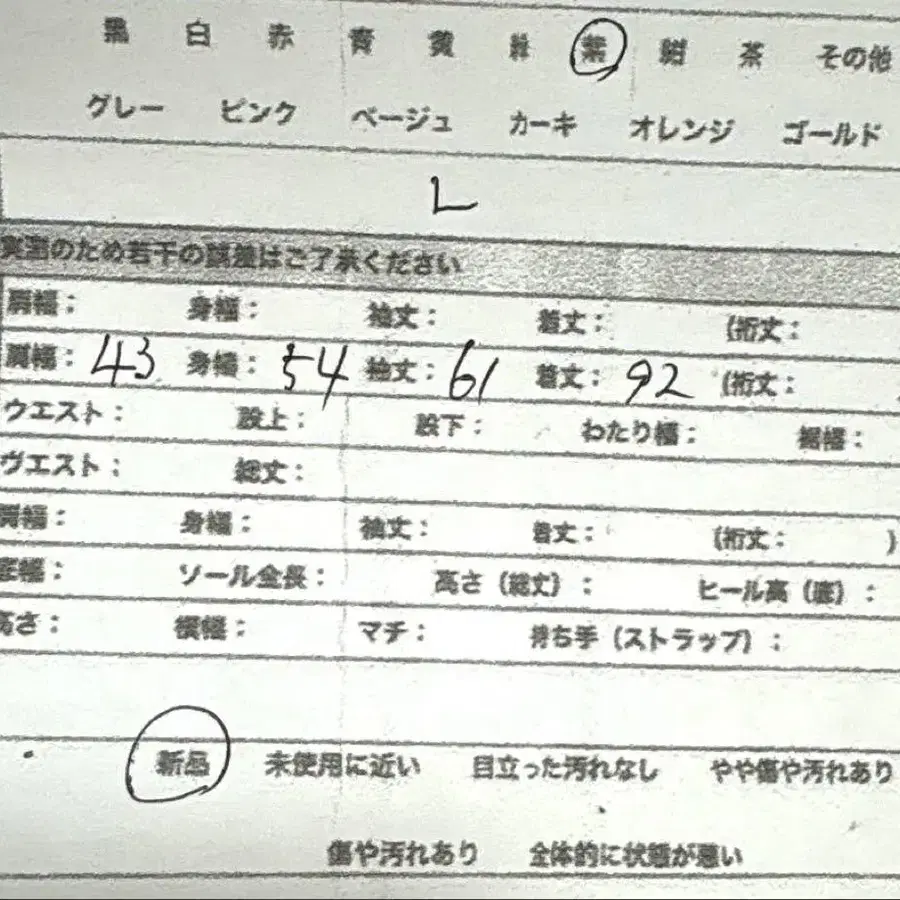 黒 白 赤 青 黄 緑 紫 紺 茶 その他
グレー ピンク ベージュ カーキ オレンジ ゴールド
L
実測のため若干の誤差はご了承ください
肩幅： 身幅： 袖丈： 着丈： (裄丈：
肩幅：43 身幅：54 袖丈：61 着丈：92 (裄丈：
ウエスト： 股上： 股下： わたり幅： 裾幅：
ウエスト： 総丈：
肩幅： 身幅： 袖丈： 着丈： (裄丈： )
底幅： ソール全長： 高さ（総丈）： ヒール高（底）：
高さ： 横幅： マチ： 持ち手（ストラップ）：
新品 未使用に近い 目立った汚れなし やや傷や汚れあり
傷や汚れあり 全体的に状態が悪い